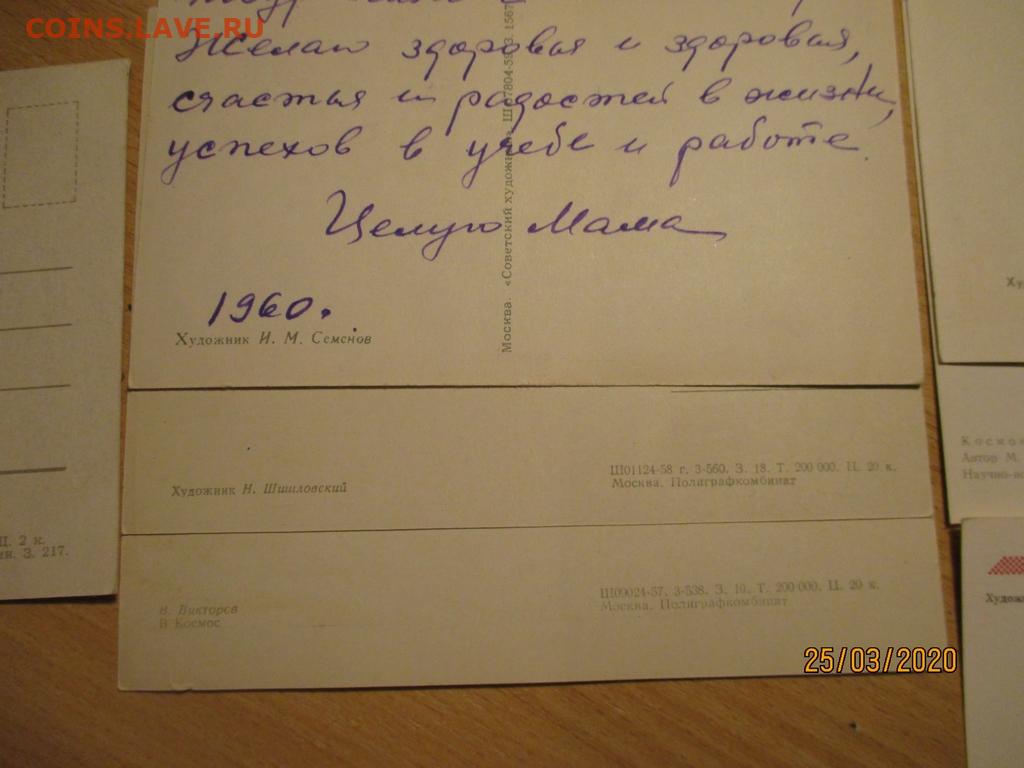 COINS.LAVE.RU
Желаю здоровья и здоровья,
счастья и радостей в жизни,
успехов в учебе и работе.
Целую Мама
1960.
Художник И. М. Семенов
Москва. «Советский художник»
Художник Н. Шишловский
Ш01124-58 г. З-560. З. 18. Т. 200 000. Ц. 20 к.
Москва. Полиграфкомбинат
В. Викторов
В Космос
Ш09024-57. З-538. З. 10. Т. 200 000. Ц. 20 к.
Москва. Полиграфкомбинат
Ц. 2 к.
З. 217.
Автор М.
25/03/2020